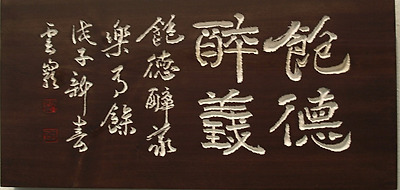 飽德
醉義
飽德醉義
樂乃餘
戊子新春
雲巖